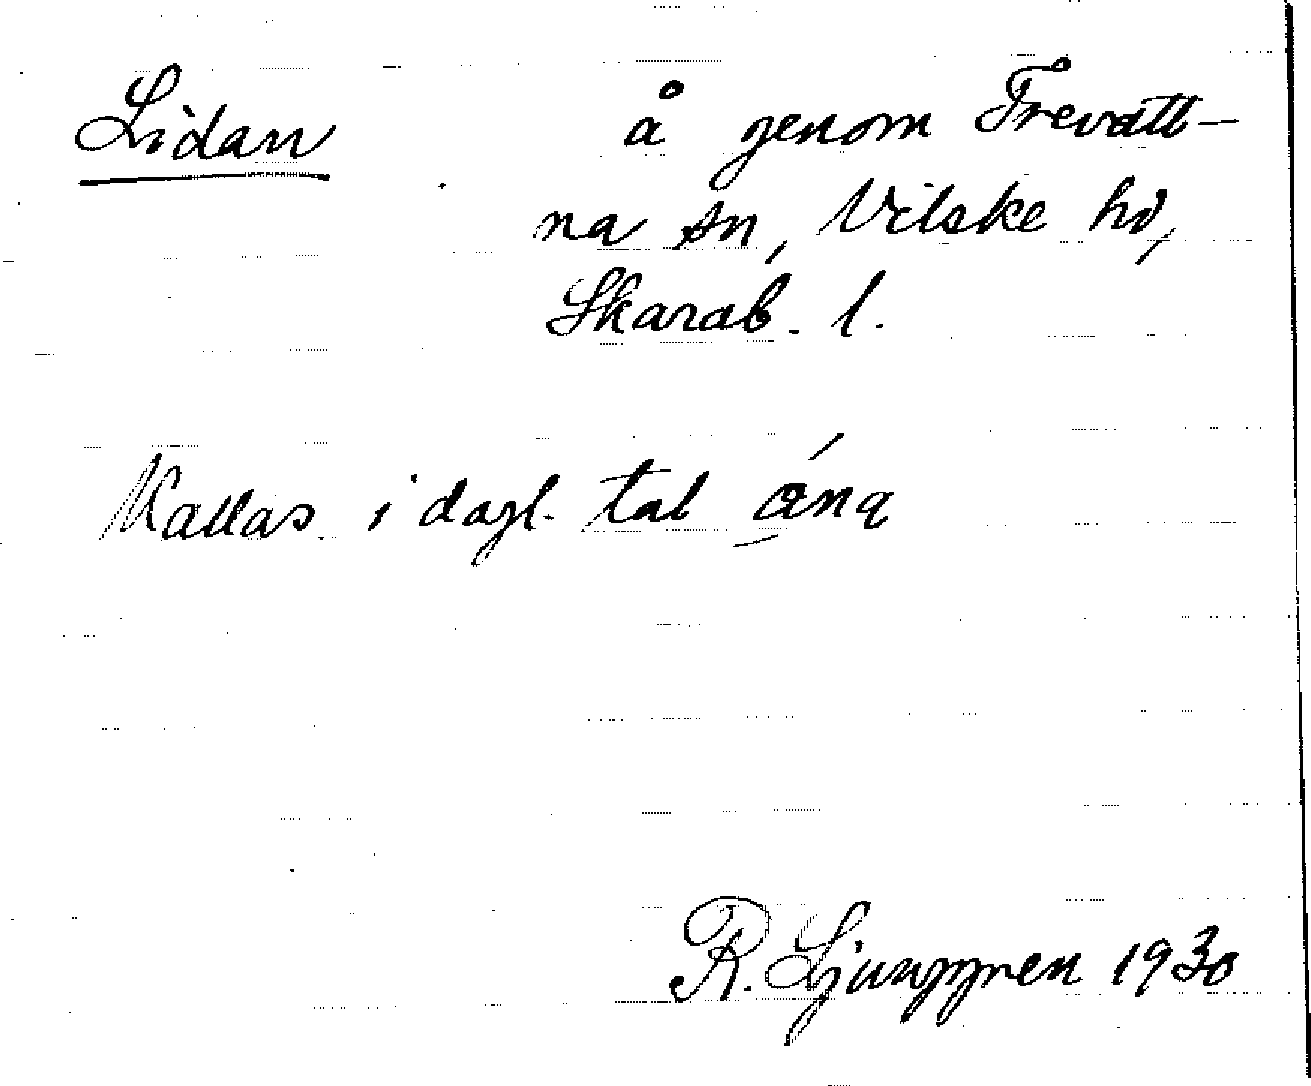 Lidan å genom Trevatt-
na sn, Vilske hd,
Skarab. l.
Kallas i dagl. tal
R. Ljunggren 1930